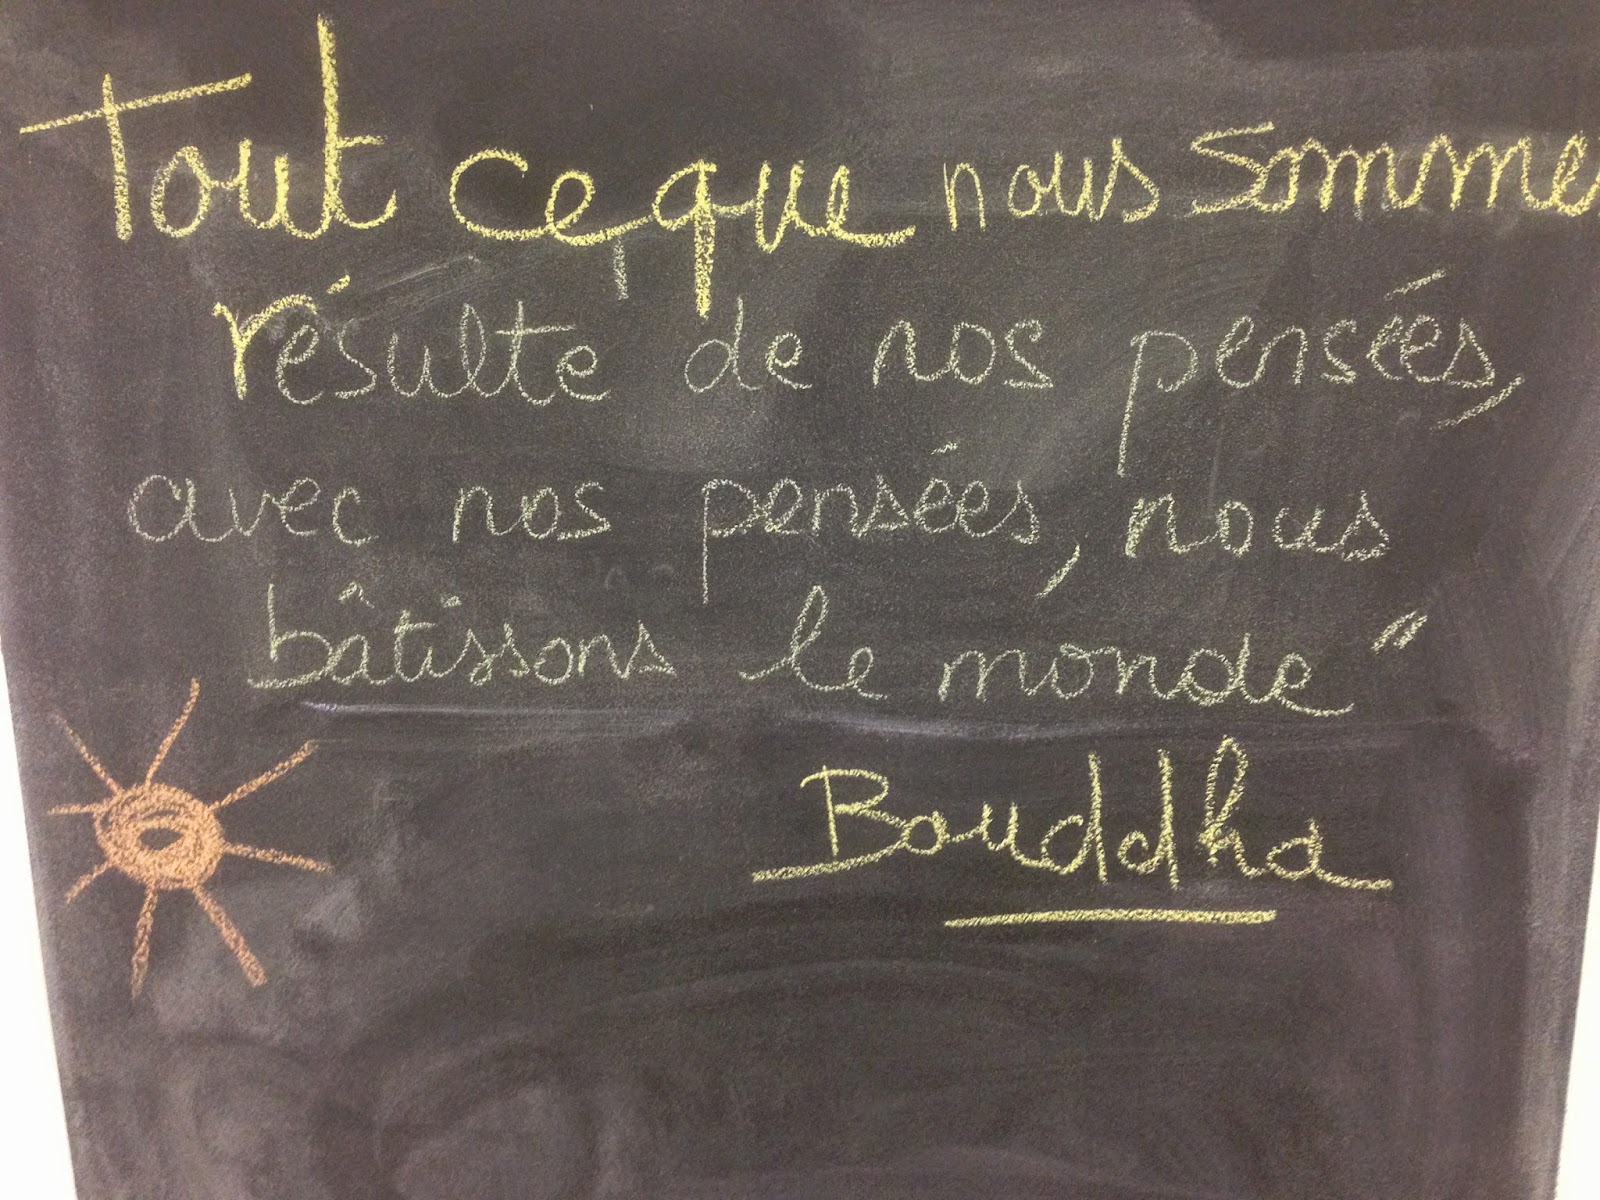 Tout ce que nous somme
résulte de nos pensées,
avec nos pensées, nous
bâtissons le monde"
Bouddha